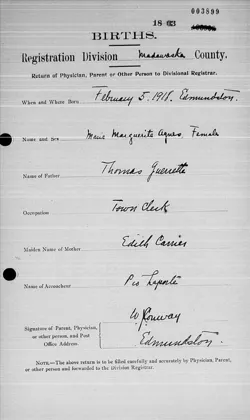 003899
18 83
BIRTHS.
Registration Division Madawaska County.
Return of Physician, Parent or Other Person to Divisional Registrar.
When and Where Born February 5, 1918. Edmundston.
Name and Sex Marie Marguerite Agnes. Female
Name of Father Thomas Guerrette
Occupation Town Clerk
Maiden Name of Mother Edith Carrier
Name of Accoucheur Pio Laporte
W. Conway
Signature of Parent, Physician,
or other person, and Post
Office Address.
Edmundston.
NOTE.—The above return is to be filled carefully and accurately by Physician, Parent,
or other person and forwarded to the Division Registrar.